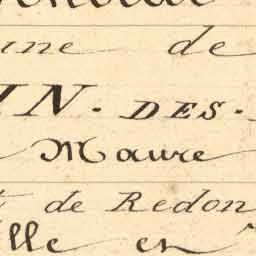 une de
IN-DES-
Maure
de Redon
ille en